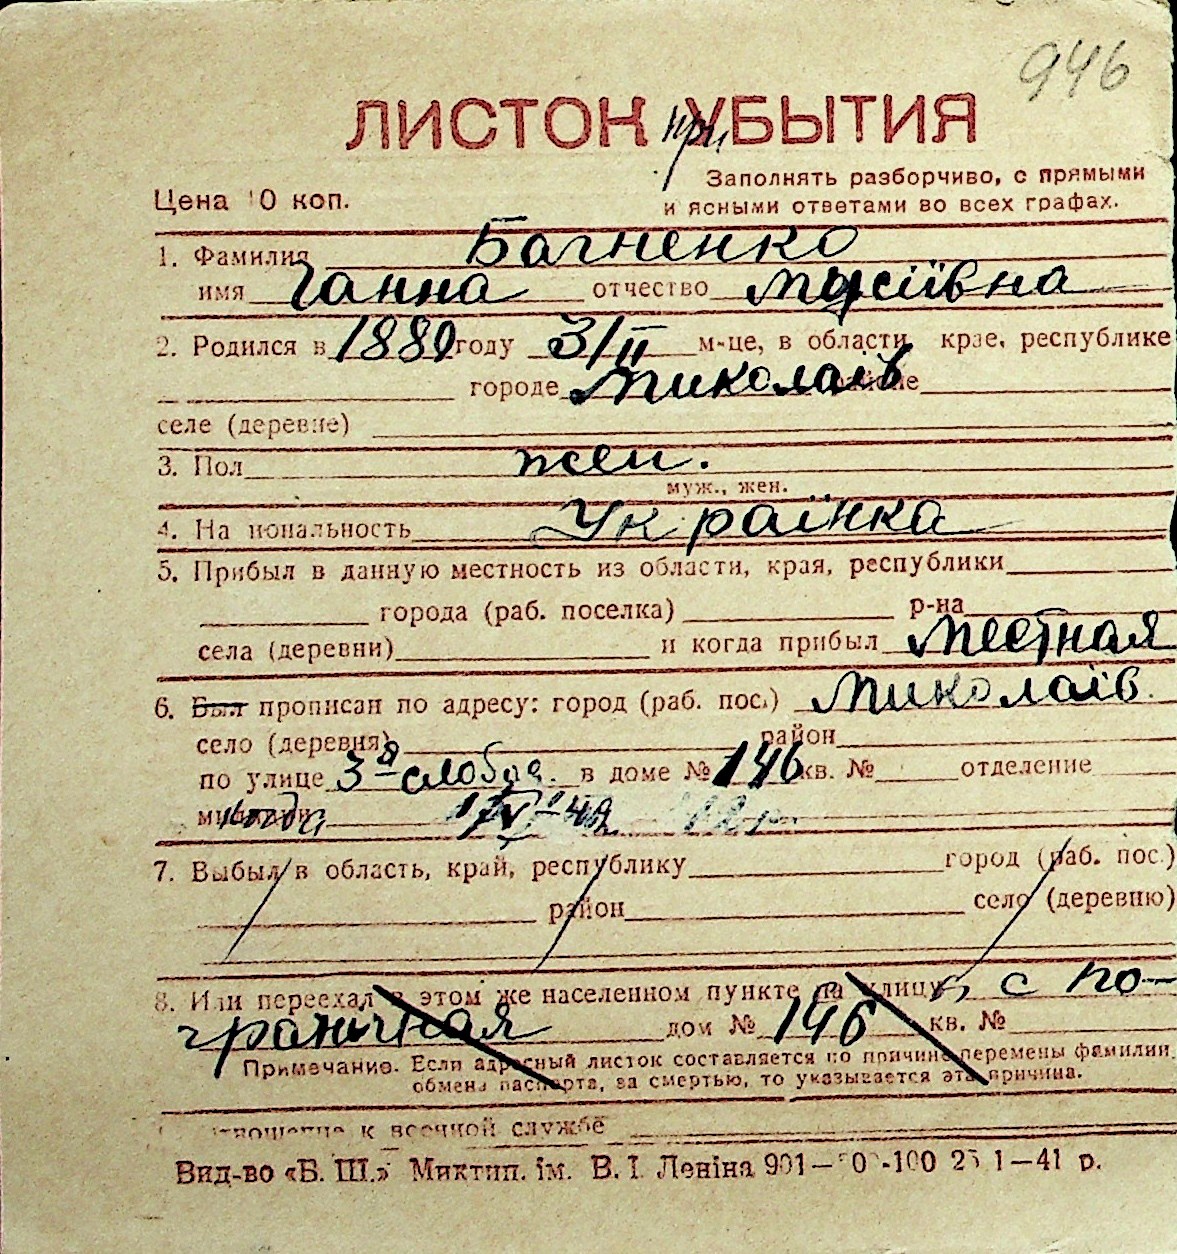 946
ЛИСТОК при УБЫТИЯ
Цена 10 коп.
Заполнять разборчиво, с прямыми
и ясными ответами во всех графах.
1. Фамилия Багненко
имя Ганна отчество Мусіївна
2. Родился в 1889 году 3/II м-це, в области, крае, республике
городе Миколаїв районе
селе (деревне)
3. Пол жен.
муж., жен.
4. Национальность Українка
5. Прибыл в данную местность из области, края, республики
города (раб. поселка) р-на
села (деревни) и когда прибыл местная
6. Был прописан по адресу: город (раб. пос.) Миколаїв.
село (деревня) район
по улице 3я слобод. в доме № 146 кв. № отделение
милиции
7. Выбыл в область, край, республику город (раб. пос.)
район село (деревню)
8. Или переехал в этом же населенном пункте на улицу с По-
граничная дом № 146 кв. №
Примечание. Если адресный листок составляется по причине перемены фамилии,
обмена паспорта, за смертью, то указывается эта причина.
отношение к военной службе
Вид-во «Б. Ш.» Миктип. ім. В. І. Леніна 901— 1—41 р.